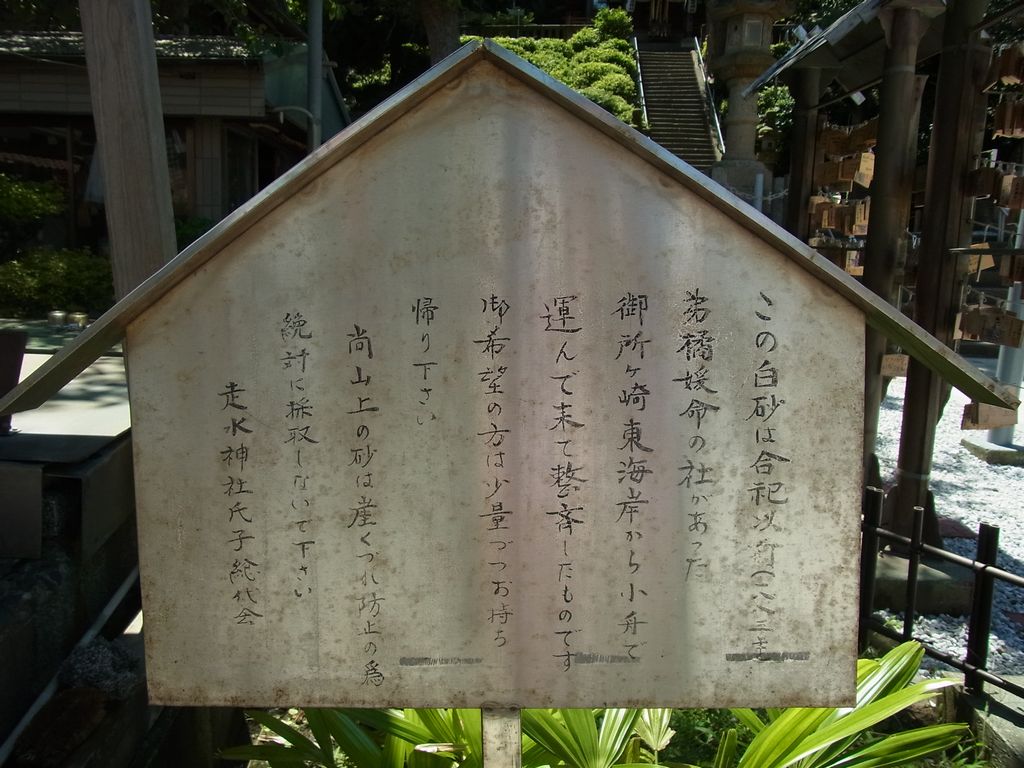 この白砂は合祀以前(一八八三年
弟橘媛命の社があった
御所ヶ崎東海岸から小舟で
運んで来て整斉したものです
御希望の方は少量づつお持ち
帰り下さい
尚山上の砂は崖くづれ防止の為
絶対に採取しないで下さい
走水神社氏子総代会